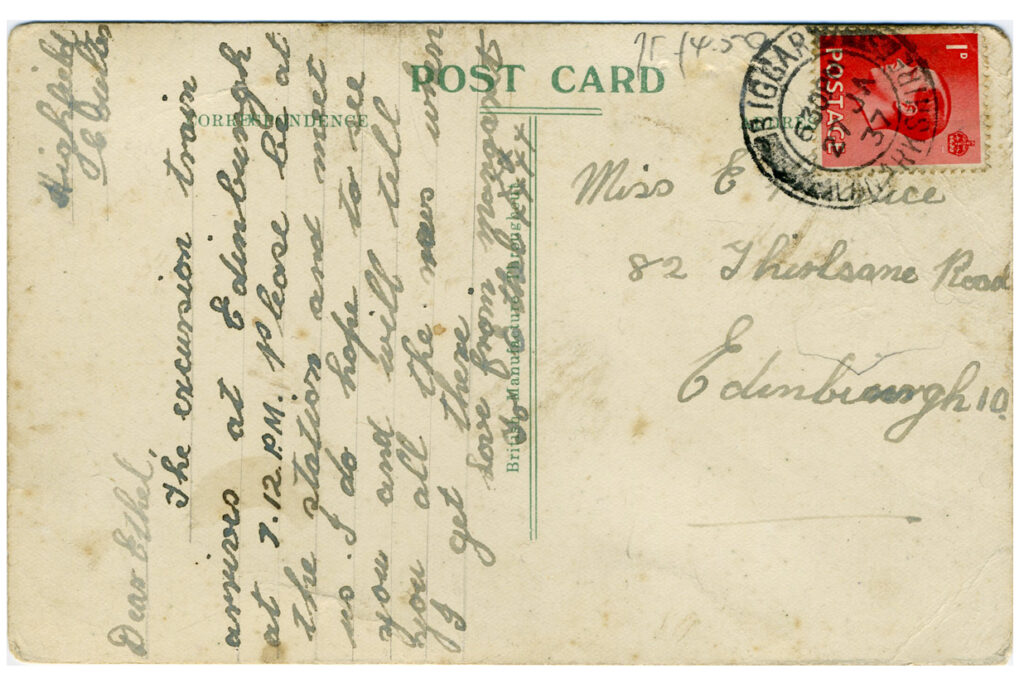 POST CARD
CORRESPONDENCE
British Manufacture Throughout
BIGGAR
27 JA
37
LANARKSHIRE
POSTAGE
1D
Highfield
Culter
Dear Ethel,
The excursion train
arrives at Edinburugh
at 7.12.P.M. please be at
the station and meet
us. I do hope to see
you and will tell
you all the news when
I get there
Love from Margaret
to Ethel xxxxxx
Miss E
82 Thirlsane Road
Edinburgh 10.